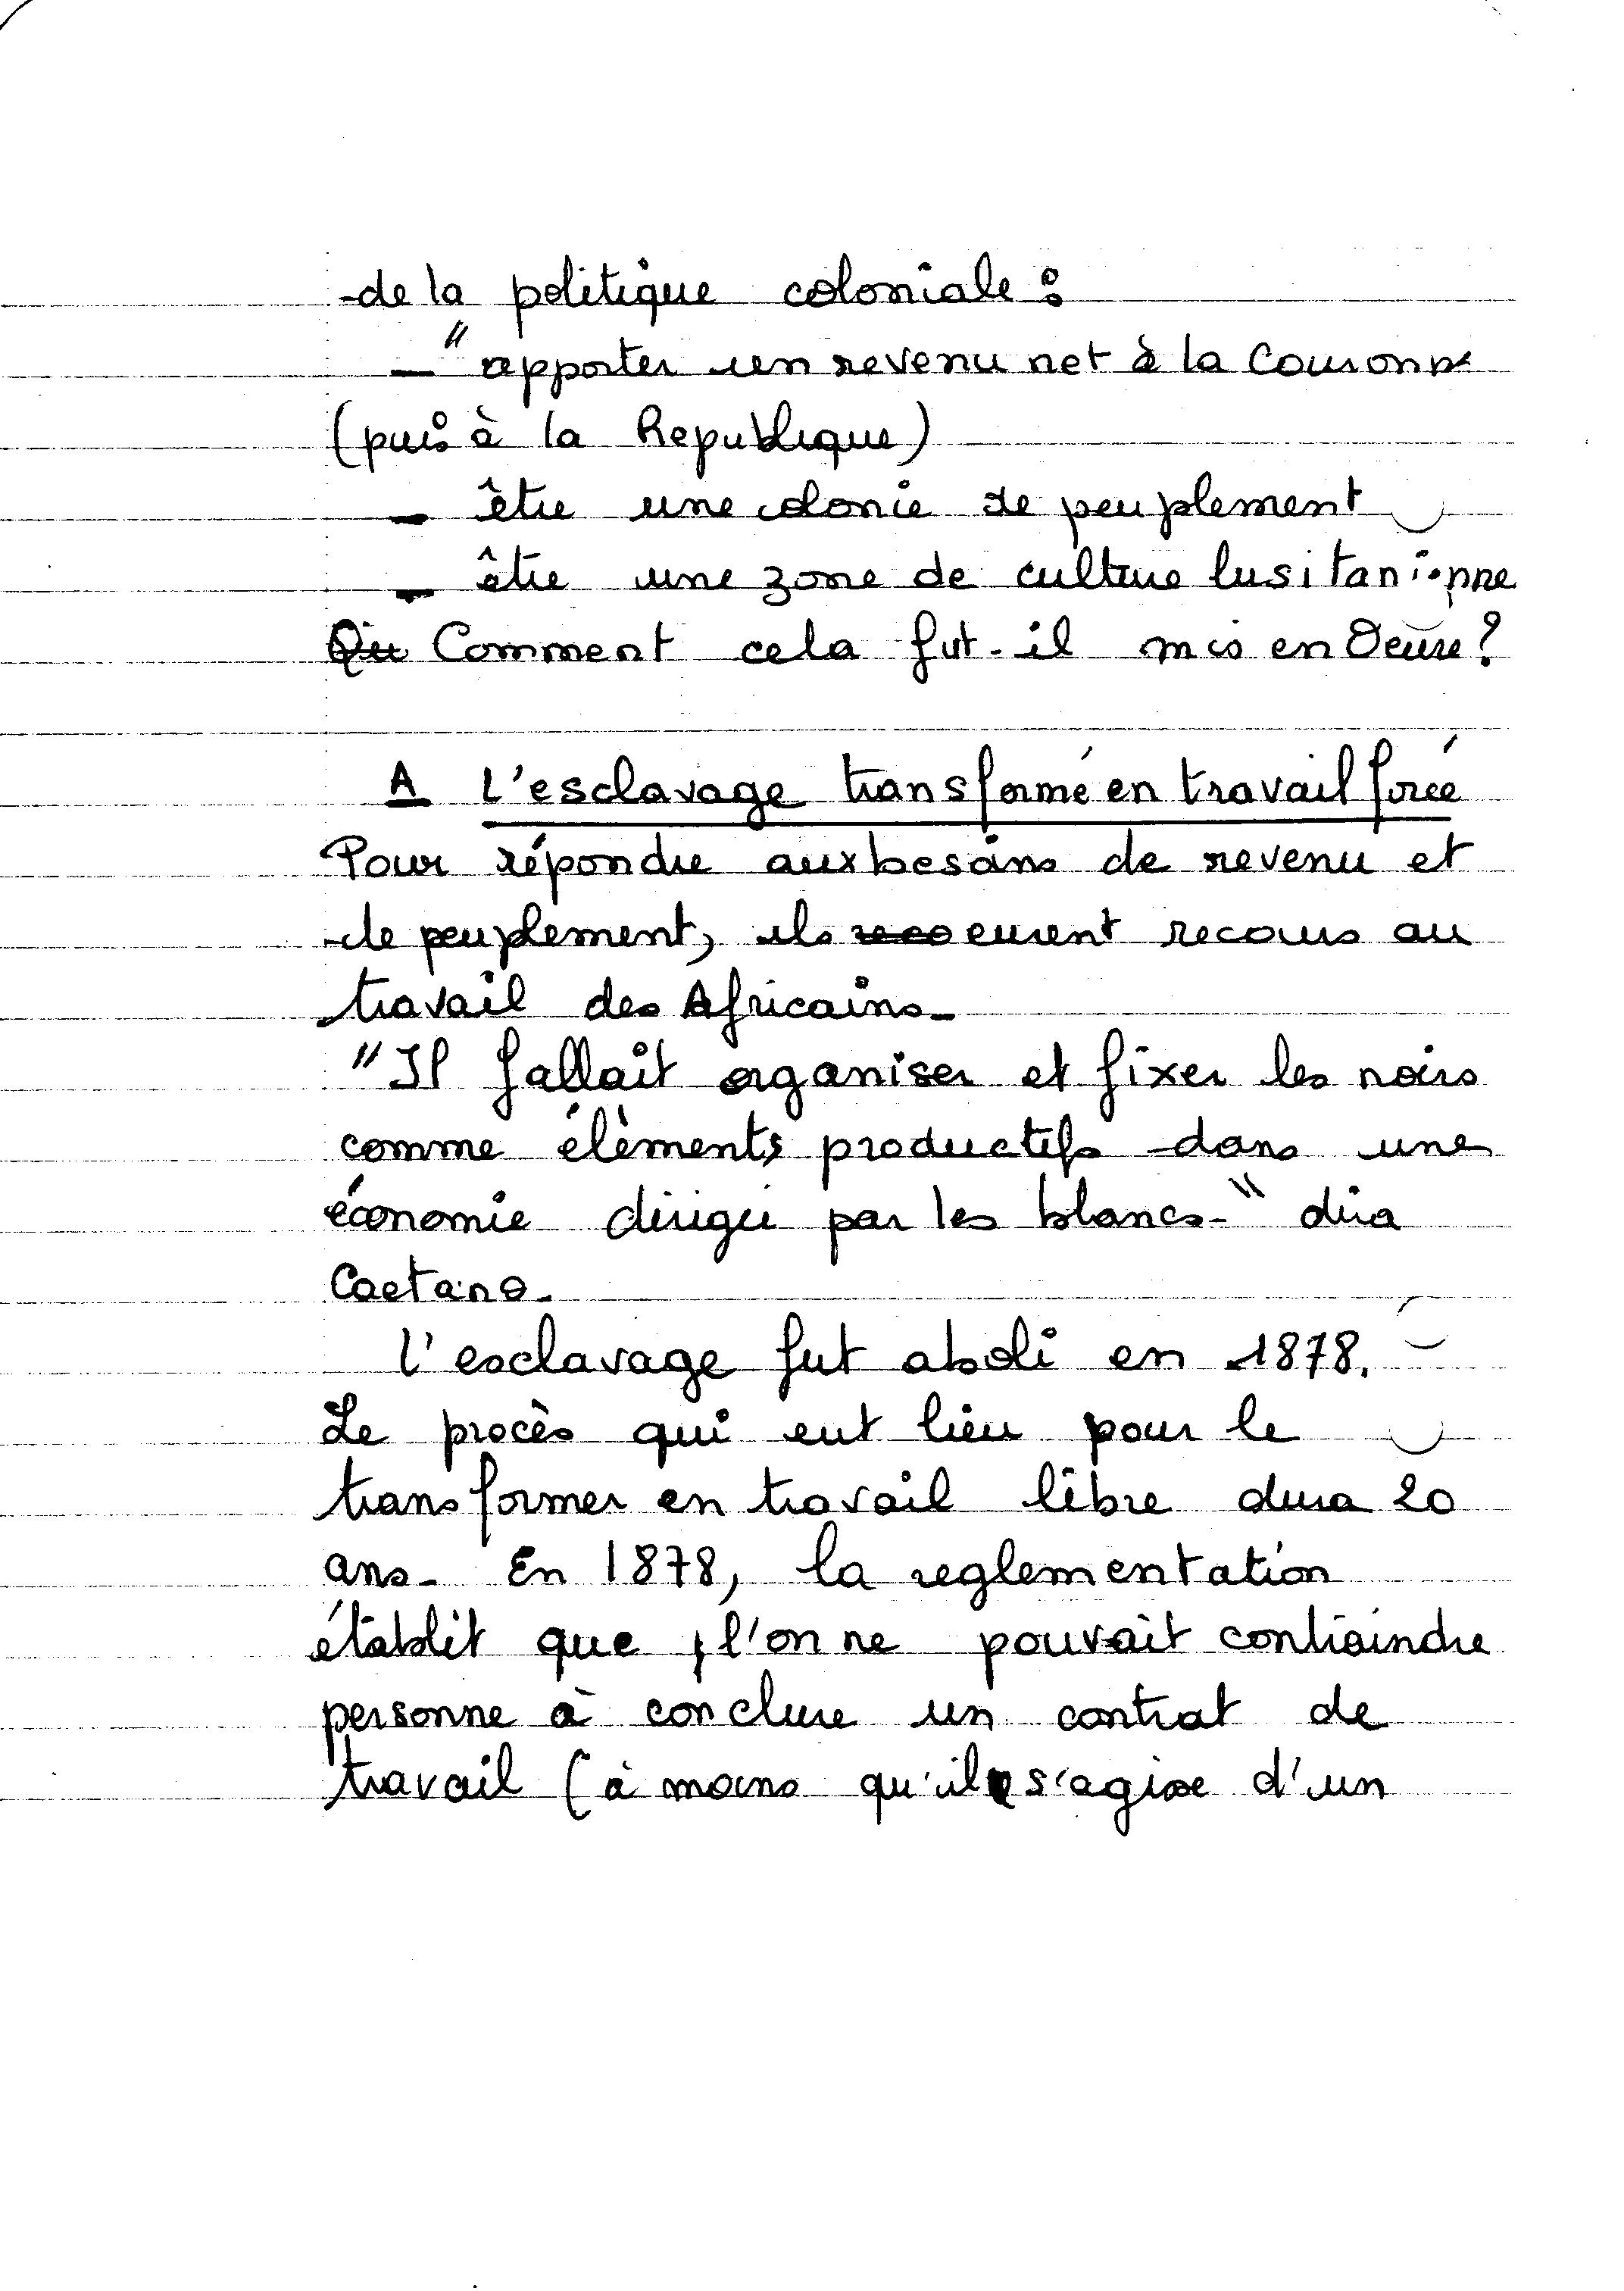 de la politique coloniale :
- "apporter un revenu net à la Couronne
(puis à la Republique)
- être une colonie de peuplement
- être une zone de culture lusitanienne
Qu Comment cela fut-il mis en Oeuvre ?
A L'esclavage transformé en travail forcé
Pour répondre aux besoins de revenu et
de peuplement, ils reco eurent recours au
travail des Africains.
"Il fallait organiser et fixer les noirs
comme élèments productifs dans une
économie dirigée par les blancs." dira
Caetano.
L'esclavage fut aboli en 1878.
Le procès qui eut lieu pour le
transformer en travail libre dura 20
ans. En 1878, la reglementation
établit que l'on ne pouvait contraindre
personne à conclure un contrat de
travail (à moins qu'il s'agisse d'un